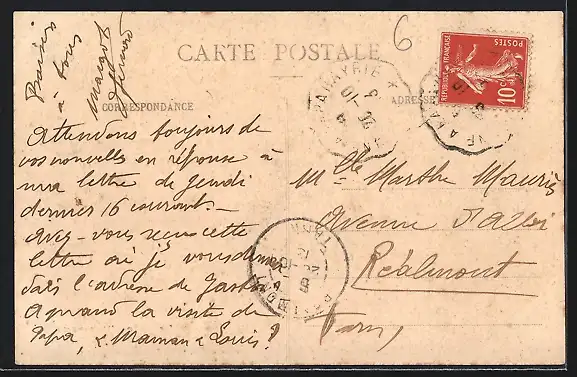 Baisers
à tous
Margot
6
CARTE POSTALE
CORRESPONDANCE
ADRESSE
RÉPUBLIQUE FRANÇAISE
POSTES
10c
Attendons toujours de
vos nouvelles en réponse à
ma lettre de jeudi
dernier 16 courant. –
Avez-vous reçu cette
lettre où je vous donnais
dans l'adresse de Gaston
A quand la visite de
Papa, & Maman & Louis?
Mlle Marthe Mauriès
Avenue d'Albi
Réalmont
Tarn
TARN